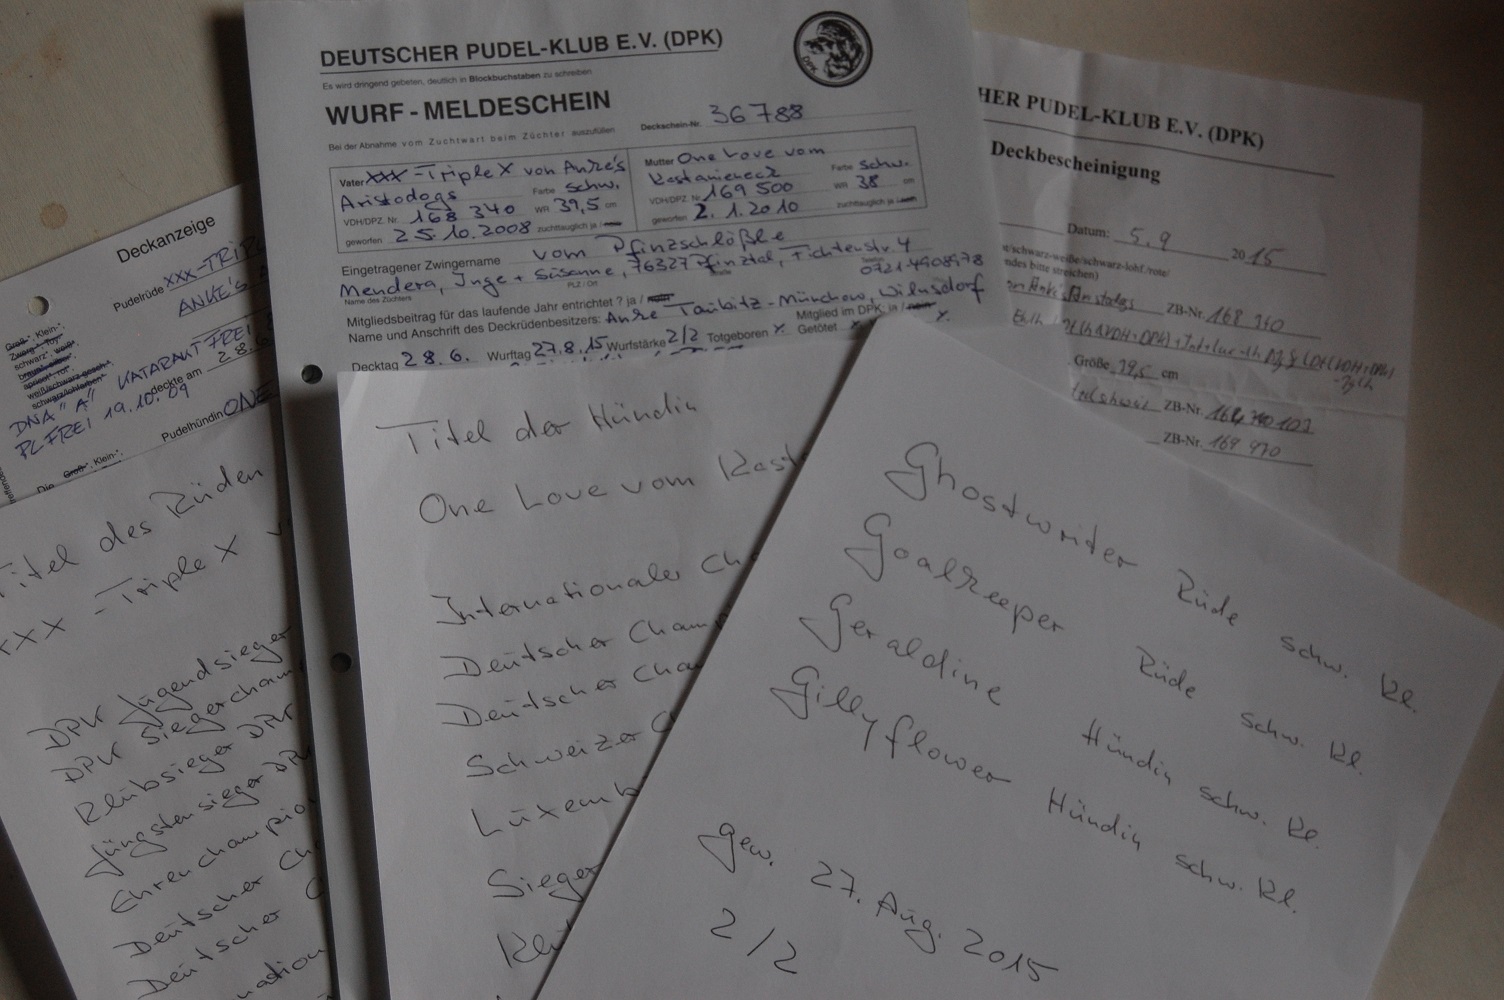 Deckanzeige
Pudelrüde xxx-TRIPL
ANKE'S
Groß-, Klein-,
KATARAKT FREI
deckte am 28.6.
DNA "A"
PL FREI 19.10.09
Pudelhündin ONE
Groß-, Klein-,
Die
Titel des Rüden
xxx - Triple X v
DPK Jugendsieger
DPK Siegercham
Klubsieger DPK
Jüngstensieger DPK
Ehrenchampio
Deutscher Ch
Deutscher C
nation
DEUTSCHER PUDEL-KLUB E.V. (DPK)
DPK
Es wird dringend gebeten, deutlich in Blockbuchstaben zu schreiben
WURF - MELDESCHEIN
Bei der Abnahme vom Zuchtwart beim Züchter auszufüllen
Deckschein-Nr. 36788
Vater XXX-Triple X von Anke's
Aristodogs Farbe schw.
VDH/DPZ. Nr. 168 340 WR 39,5 cm
geworfen 25.10.2008 zuchttauglich ja /
Mutter One Love vom
Kastanieneck Farbe schw.
VDH/DPZ. Nr. 169 500 WR 38 cm
geworfen 2.1.2010 zuchttauglich ja /
Eingetragener Zwingername vom Pfinzschlößle
Mendera, Inge + Susanne, 76327 Pfinztal, Fichtenstr. 4
Name des Züchters PLZ / Ort Straße Telefon 0721-4908978
Mitgliedsbeitrag für das laufende Jahr entrichtet ? ja / nein Mitglied im DPK: ja / nein
Name und Anschrift des Deckrüdenbesitzers: Anke Taubitz-Münchow, Wilnsdorf
Decktag 28.6. Wurftag 27.8.15 Wurfstärke 2/2 Totgeboren x Getötet x x.
HER PUDEL-KLUB E.V. (DPK)
Deckbescheinigung
Datum: 5.9 2015
e/schwarz-weiße/schwarz-lohf./rote/
ndes bitte streichen)
ZB-Nr. 168 340
Größe 39,5 cm
ZB-Nr.
ZB-Nr. 169 970
Titel der Hündin
One Love vom Kast
Internationaler Ch
Deutscher Champ
Deutscher Cha
Schweizer C
Luxemb
Sieger
Klu
Ghostwriter Rüde schw. Kl.
Goalkeeper Rüde schw. Kl.
Geraldine Hündin schw. Kl.
Gillyflower Hündin schw. Kl.
gew. 27. Aug. 2015
2/2